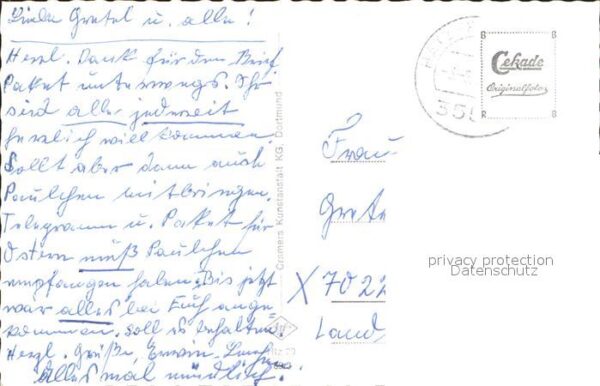 Liebe Gretel u. alle!
Herzl. Dank für den Brief,
Paket unterwegs. Ihr
seid alle jederzeit
herzlich willkommen.
Sollt aber dann auch
Paulchen mitbringen.
Telegramm u. Paket für
Ostern muß Paulchen
empfangen haben. Bis jetzt
war alles bei Euch ange-
kommen. Sollt es behalten!
Herzl. Grüße, Erwin.
Alles mal mündlich!
Cramers Kunstanstalt KG. Dortmund
Cekade
Originalfoto
350
Frau
Grete
X 702
Land
privacy protection
Datenschutz